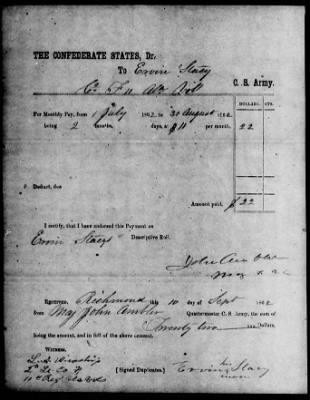 THE CONFEDERATE STATES, Dr.
To Ervin Stacy
Co F 11 C. S. Army.
DOLLARS. CTS.
For Monthly Pay, from 1 July 1862, to 30 August 1862
being 2 months, days, at $11 per month. 22
Deduct, due
Amount paid, $22
I certify, that I have endorsed this Payment on
Ervin Stacys Descriptive Roll.
John Ambler
Maj
Received, Richmond this 10 day of Sept 1862
from Maj John Ambler Quartermaster C. S. Army, the sum of
Twenty two Dollars.
being the amount, and in full of the above account.
Witness.
2d Lt Co F
11th Reg
[Signed Duplicates.]
Ervin his Stacy
mark